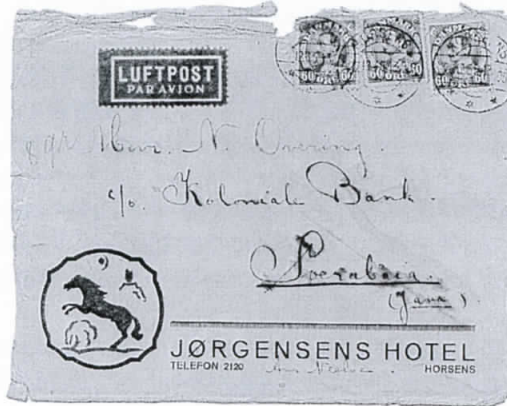 LUFTPOST
PAR AVION
60 ØRE 60
60 ØRE 60
60 ØRE 60
N.
c/o. Koloniale Bank.
Soerabaia.
(Java)
JØRGENSENS HOTEL
TELEFON 2120
HORSENS